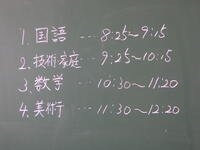 1. 国語 ・・・ 8:25〜9:15
2. 技術家庭 ・・・ 9:25〜10:15
3. 数学 ・・・ 10:30〜11:20
4. 美術 ・・・ 11:30〜12:20